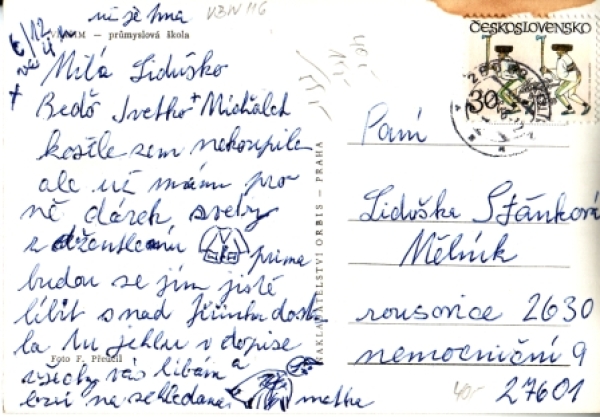 už je tma
VBIV 116
6/12
– průmyslová škola
Milá Liduško
Bedo Ivetko + Michálek
košile sem nekoupila
ale už mám pro
ně dárek svetry
z
prima
budou se jim jistě
líbit snad Jiřinka dosta
la tu jehlu v dopise
Foto F. Přeučil
všechny vás líbám a
brzi na shledanou
matka
NAKLADATELSTVÍ ORBIS – PRAHA
ČESKOSLOVENSKO
30
Paní
Liduška Stánková
Mělník
rousovice 2630
nemocniční 9
27601